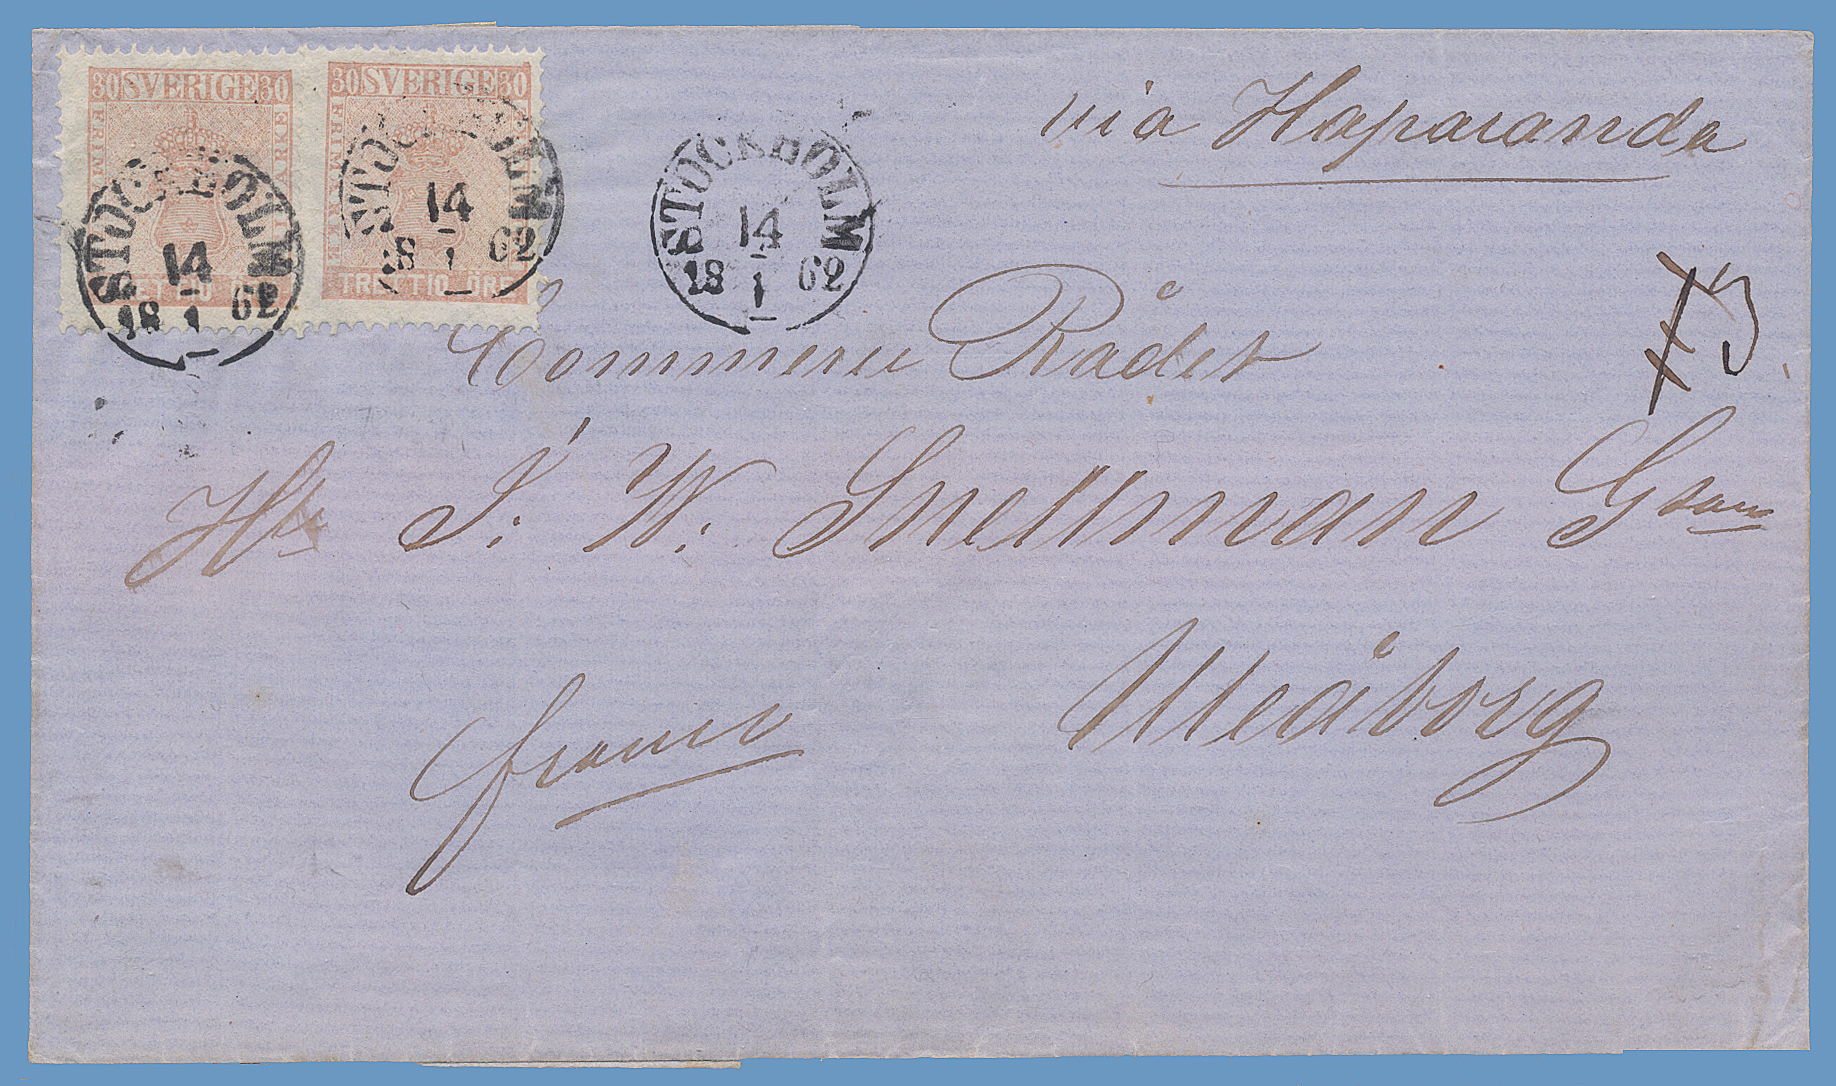 30 SVERIGE 30
FRIMÄRKE
TRETTIO ÖRE
30 SVERIGE 30
FRIMÄRKE
TRETTIO ÖRE
STOCKHOLM
14
18 1 62
STOCKHOLM
14
18 1 62
STOCKHOLM
14
18 1 62
via Haparanda
Commerce Rådet
Hr J. W. Snellman Gson
Uleåborg
franco